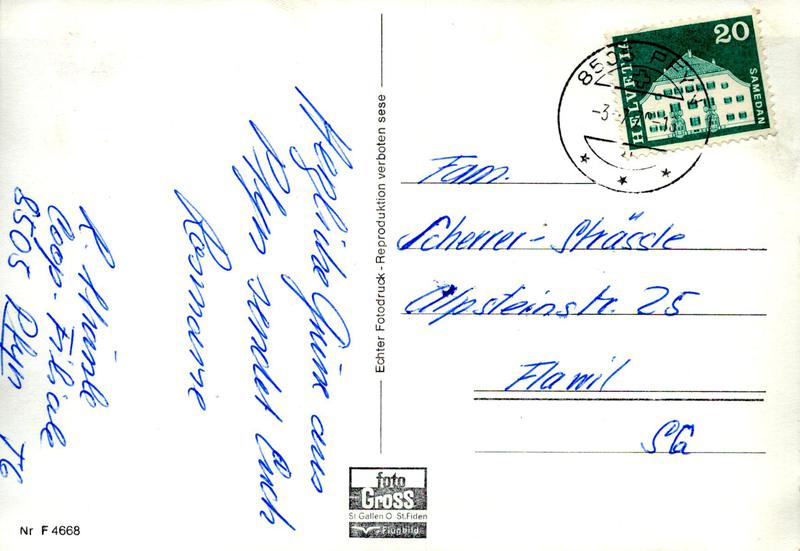 Herzliche Grüsse aus
Pfyn sendet Euch
Rosmarie
R. Strässle
Coop-Filiale
8505 Pfyn TG
Echter Fotodruck - Reproduktion verboten sese
HELVETIA
20
SAMEDAN
8505 PFYN
Fam.
Scherrer-Strässle
Alpsteinstr. 25
Flawil
SG
foto
Gross
St Gallen O St. Fiden
Flugbild
Nr F 4668